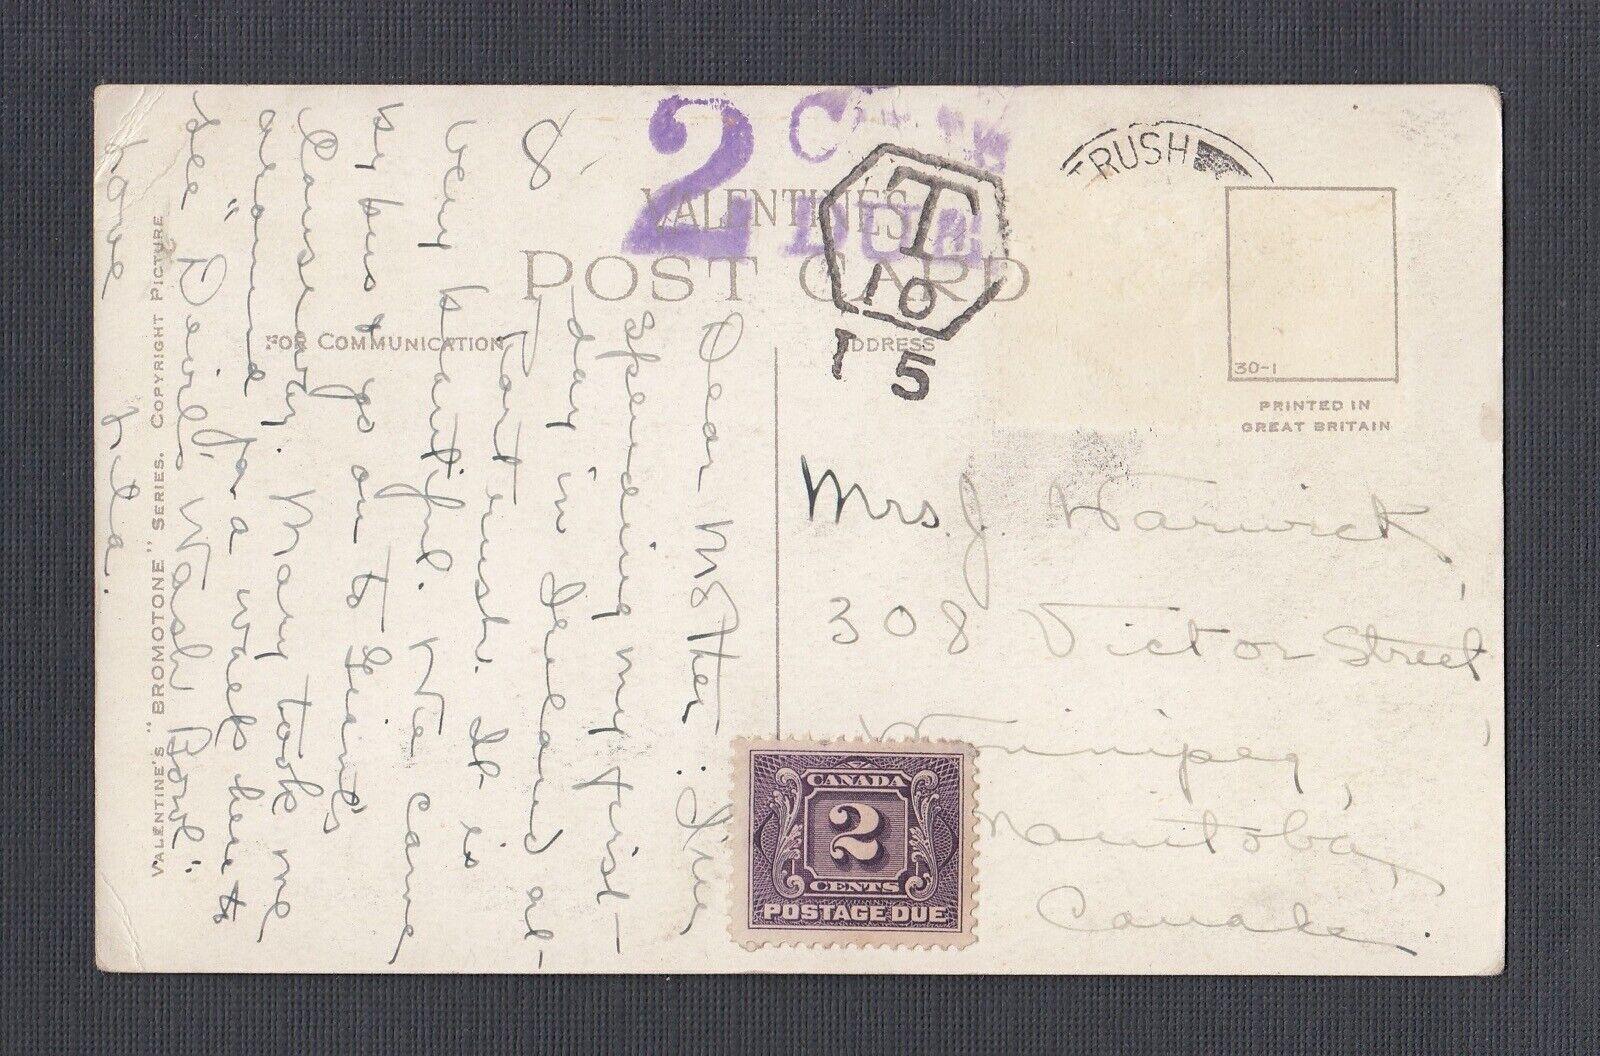 2 CENTS
DUE
T
10
15
RUSH
VALENTINE'S
POST CARD
FOR COMMUNICATION
ADDRESS
30-1
PRINTED IN
GREAT BRITAIN
Mrs. J. Warwick,
308 Victor Street,
Winnipeg,
Manitoba,
Canada.
CANADA
2
CENTS
POSTAGE DUE
8
Dear Mother:
spending my first
day in Ireland at
Portrush. It is
very beautiful. We came
by bus & go on to Giant's
Causeway. Mary took me
around for a walk here to
see "Devil's Wash Bowl".
Love
VALENTINE'S "BROMOTONE" SERIES. COPYRIGHT PICTURE